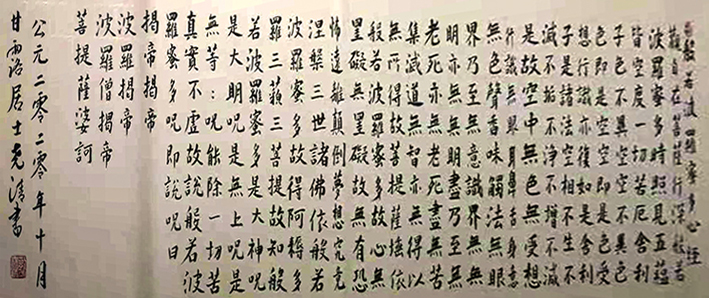 般若波羅蜜多心経
觀自在菩薩行深般若
波羅蜜多時照見五蘊
皆空度一切苦厄舍利
子色不異空空不異色
色即是空空即是色受
想行識亦復如是舍利
子是諸法空相不生不
滅不垢不淨不增不減
是故空中無色無受想
行識無眼耳鼻舌身意
無色聲香味觸法無眼
界乃至無意識界無無
明亦無無明盡乃至無
老死亦無老死盡無苦
集滅道無智亦無得以
無所得故菩提薩埵依
般若波羅蜜多故心無
罣礙無罣礙故無有恐
怖遠離顛倒夢想究竟
涅槃三世諸佛依般若
波羅蜜多故得阿耨多
羅三藐三菩提故知般
若波羅蜜多是大神呪
是大明呪是無上呪是
無等:呪能除一切苦
真實不虛故說般若波
羅蜜多呪即說呪曰
揭帝揭帝
波羅揭帝
波羅僧揭帝
菩提薩婆訶
公元二零二零年十月
甘露居士克清書